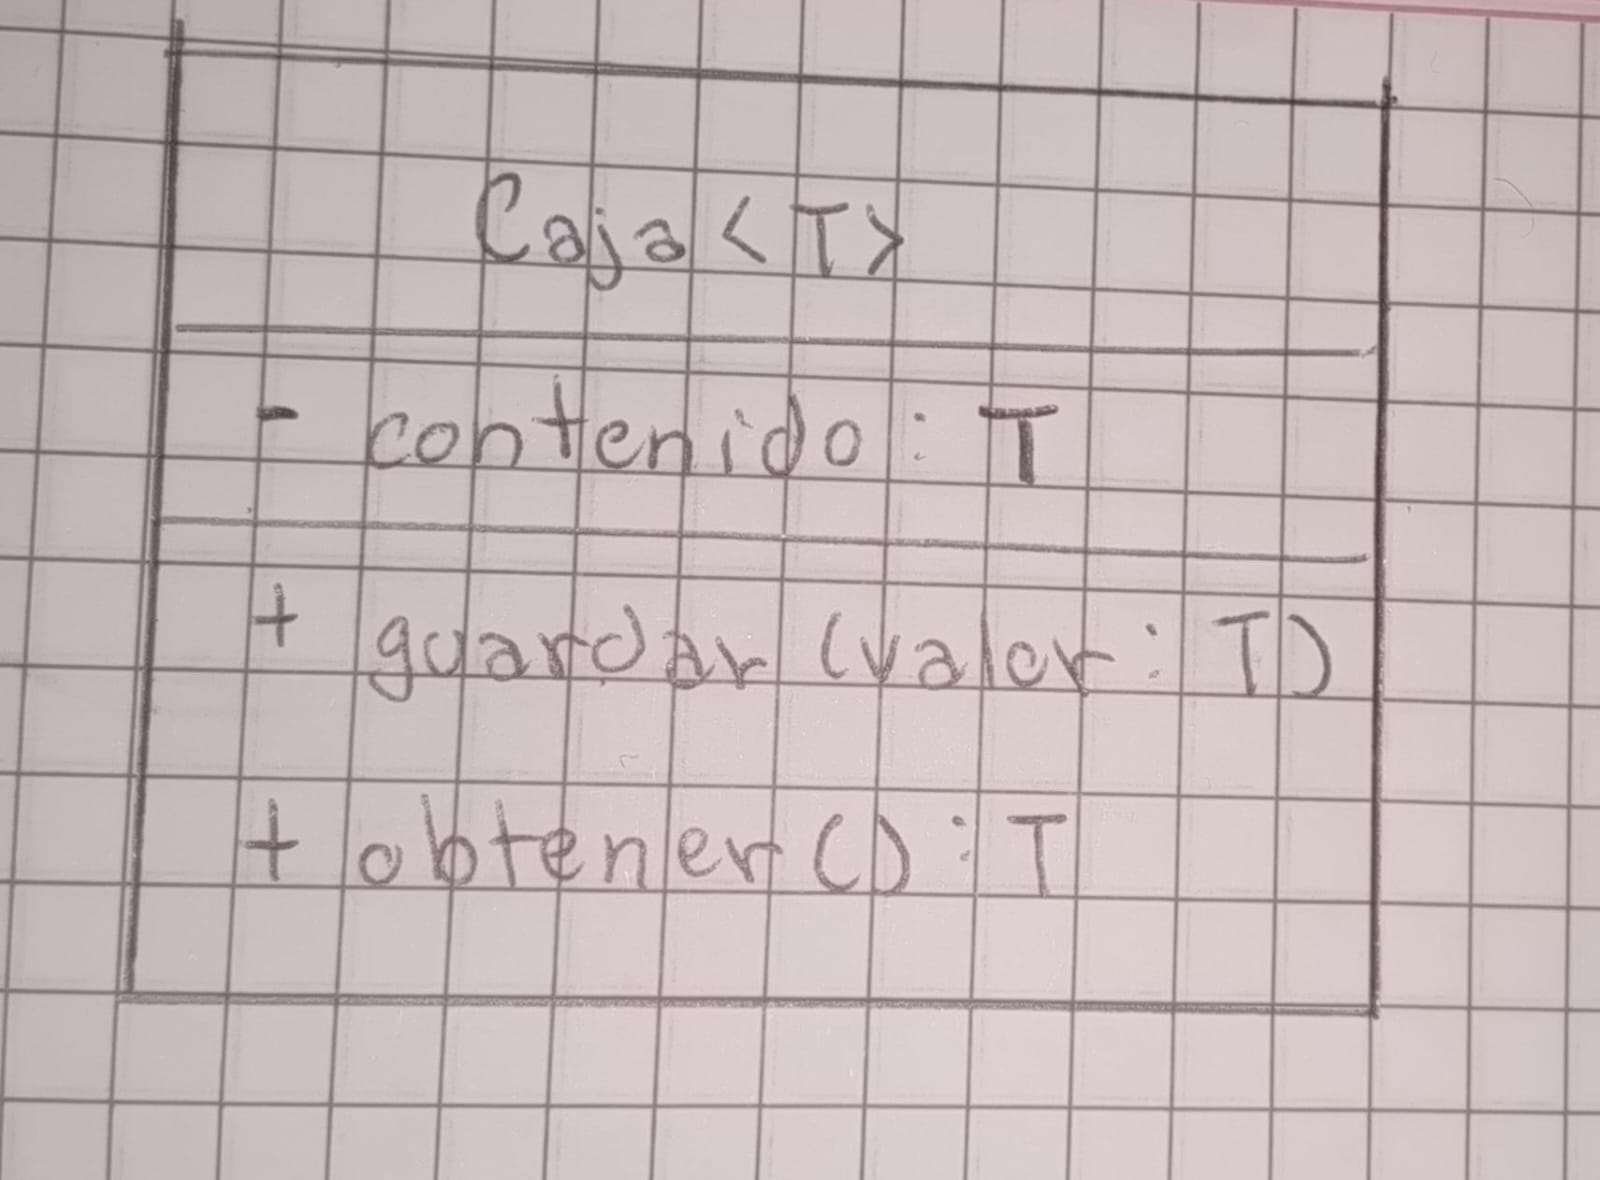 Caja <T>
- contenido : T
+ guardar (valor : T)
+ obtener () : T